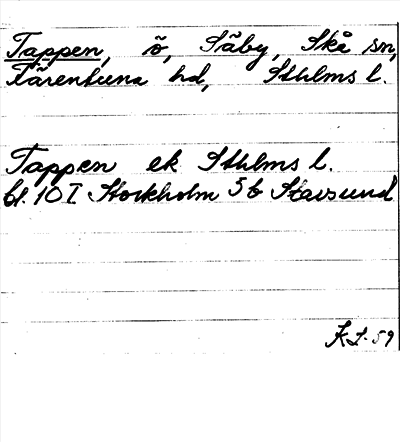 Tappen, ö, Säby, Skå sn,
Färentuna hd, Sthlms l.
Tappen ek Sthlms l.
bl. 10 I Stockholm 5b Stavsund
K.L. 59